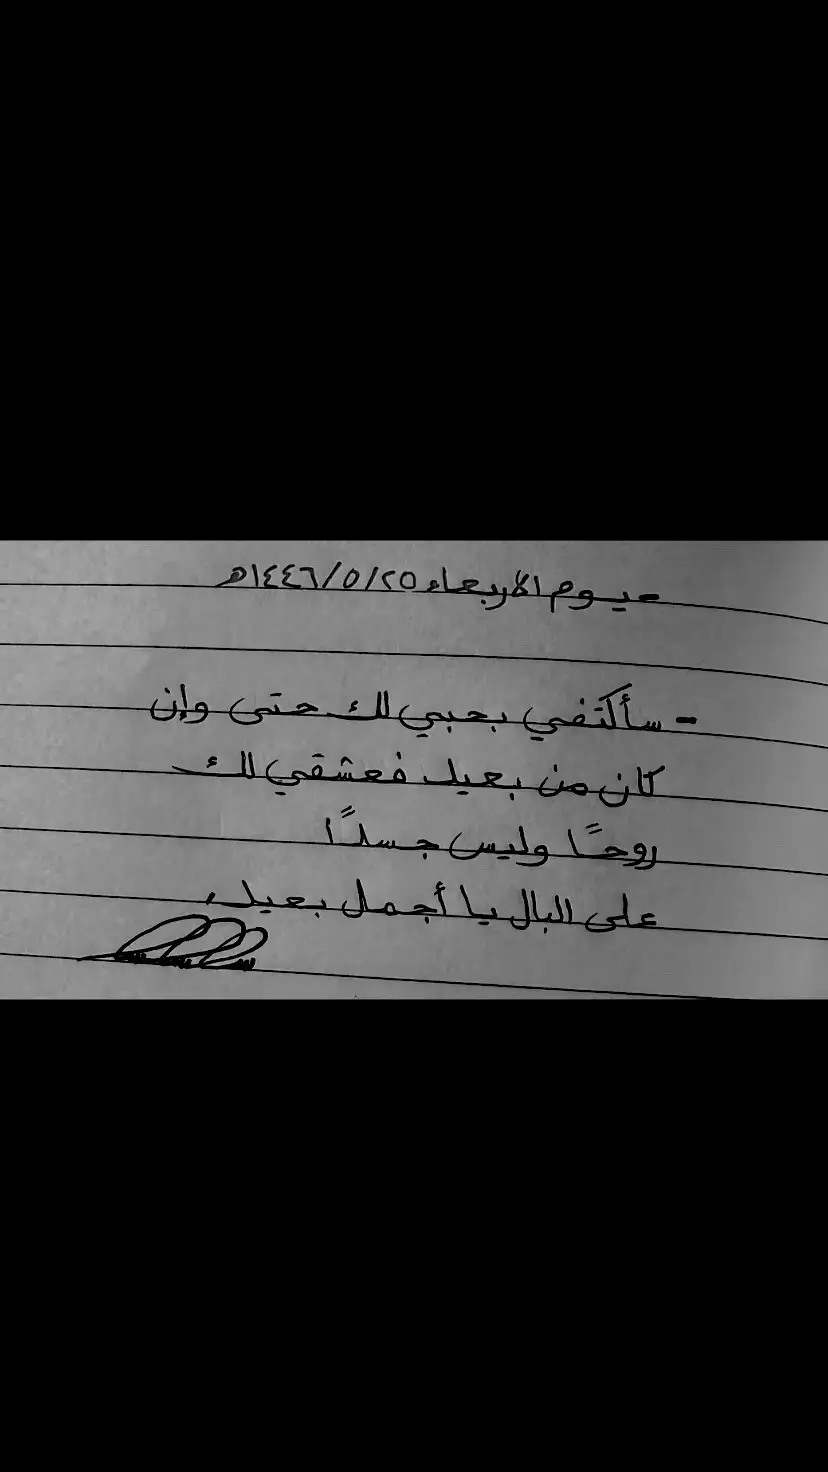 - يوم الاربعاء ١٤٤٦/٥/٢٥هـ
- سأكتفي بحبي لك حتى وإن
كان من بعيد فعشقي لك
روحًا وليس جسدًا
على البال يا أجمل بعيد،